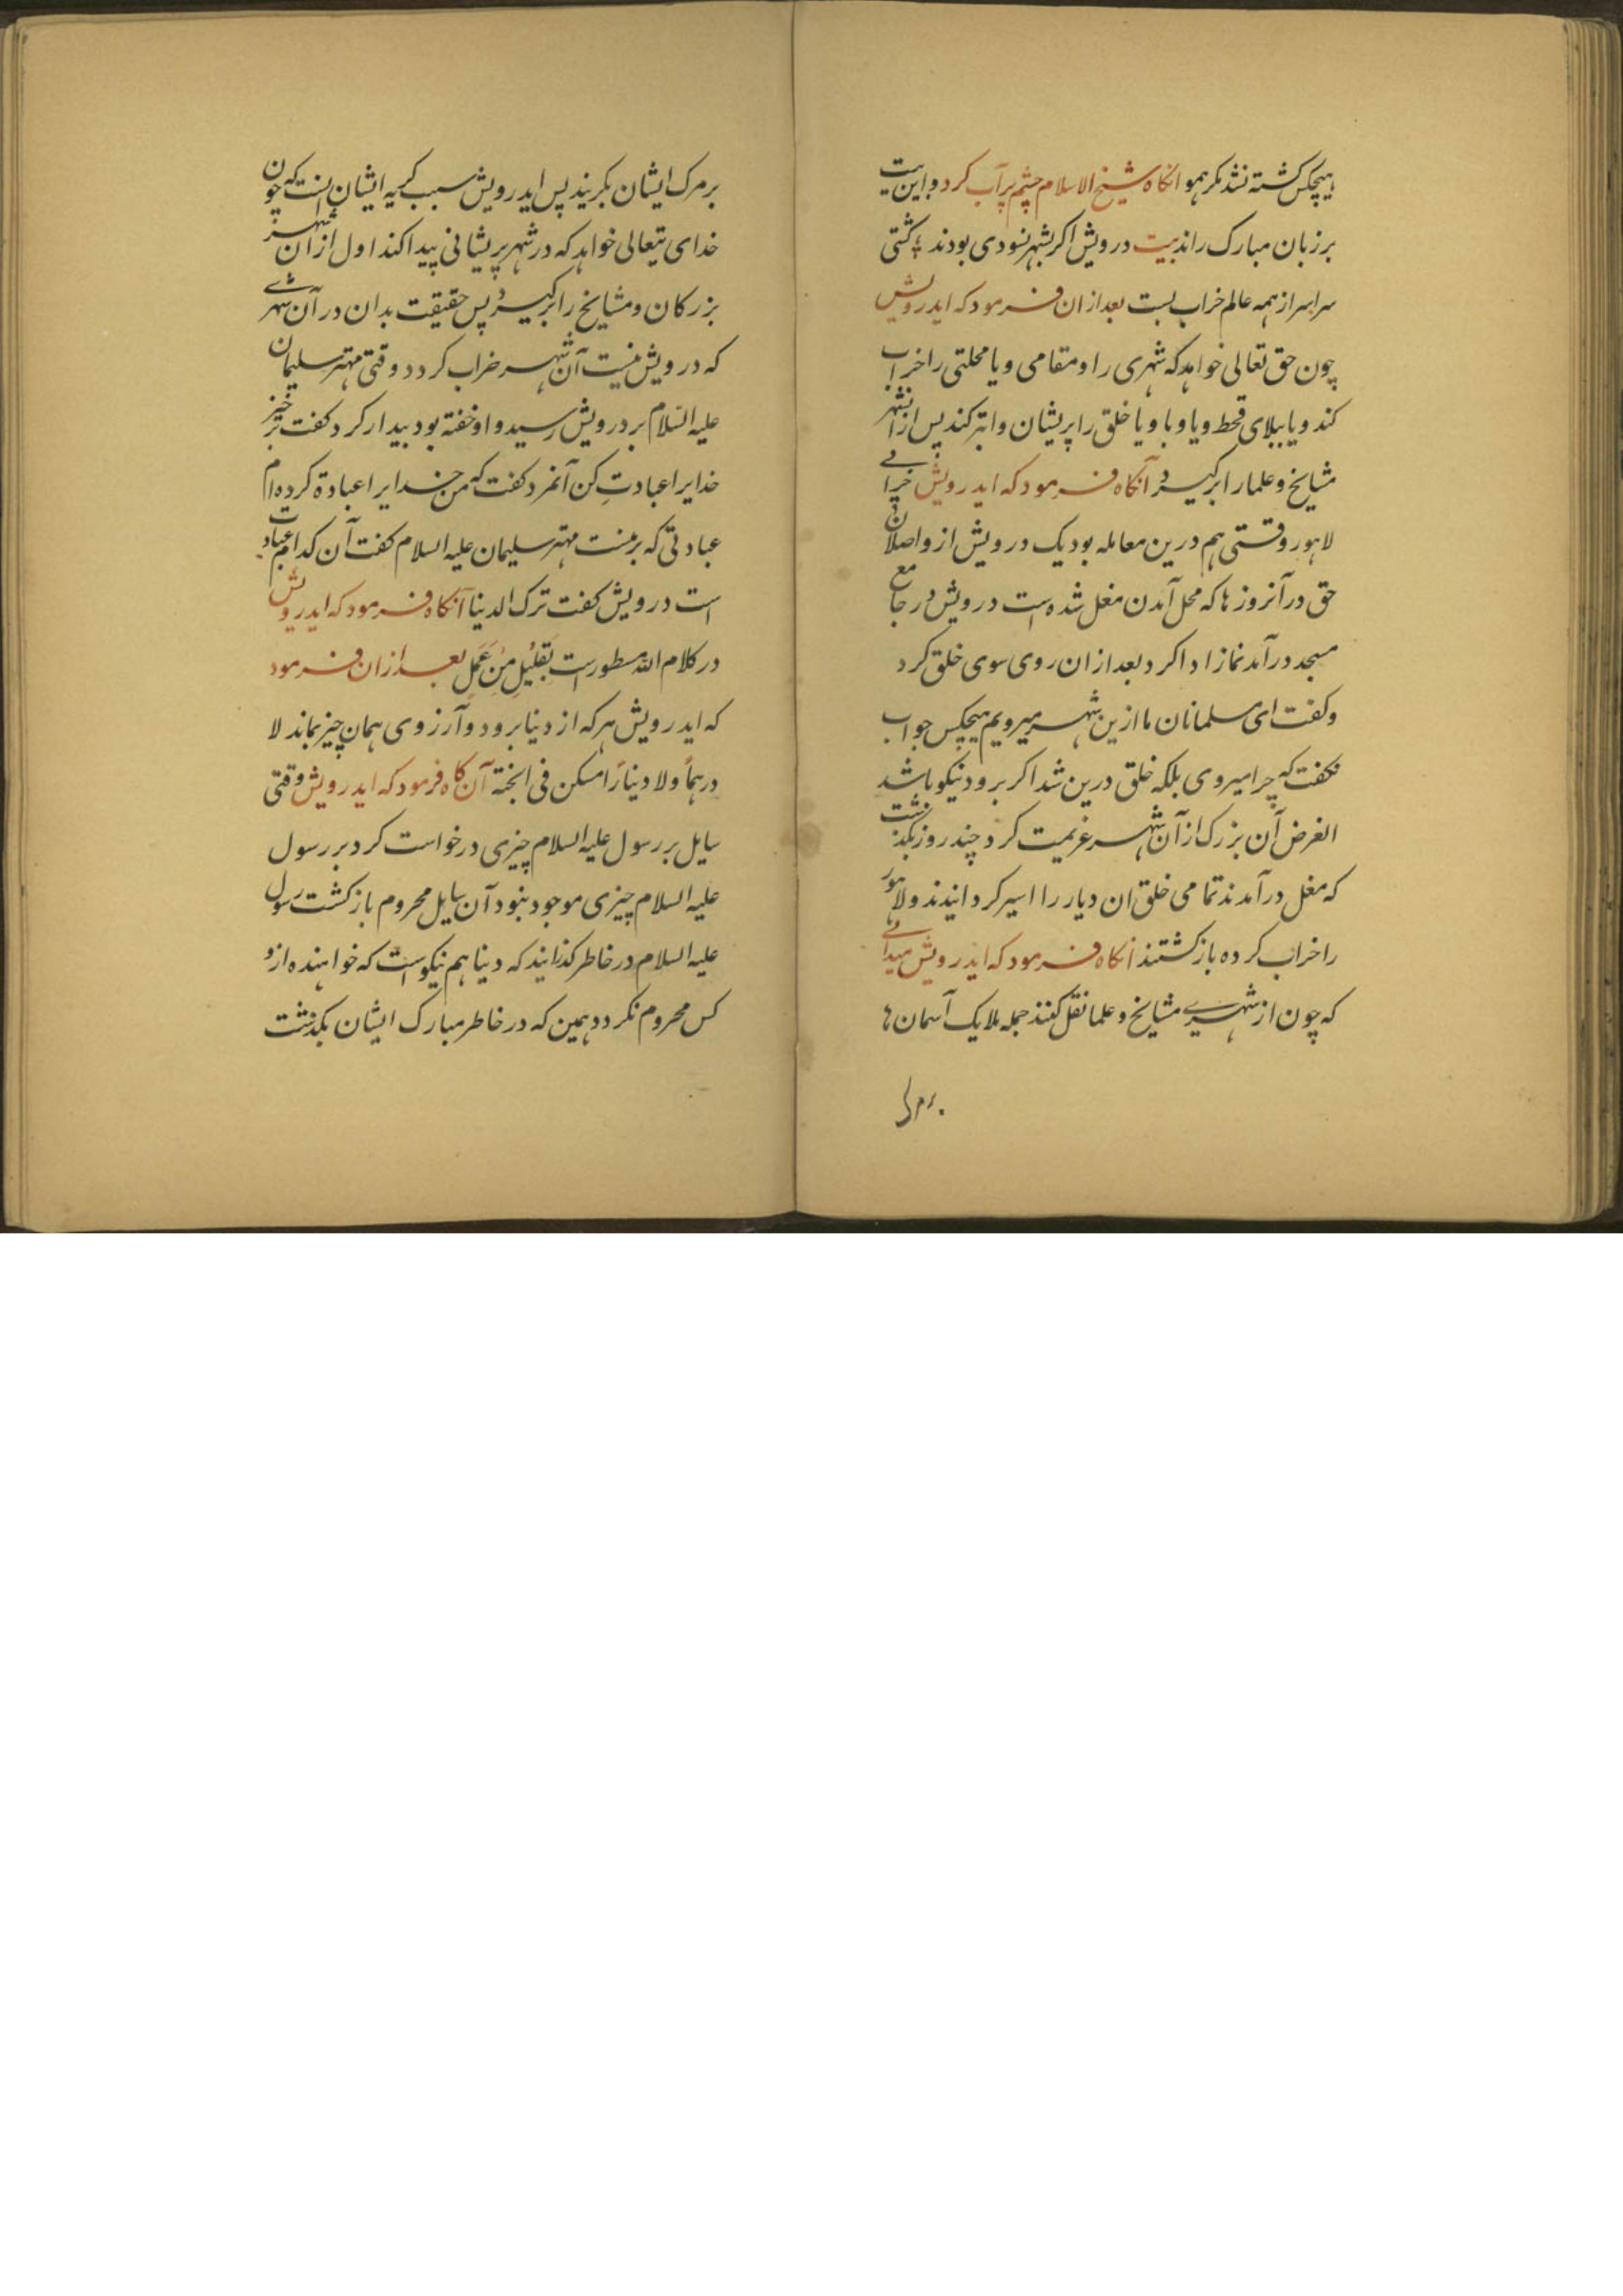 هیچکس کشته نشد مکر همو انکاه شیخ الاسلام چشم پر آب کرد و این بیت
بر زبان مبارک راند بیت درویش اکر بشهر نبودی بودند کشتی
سراسر از همه عالم خراب بست بعد از ان فرمود که ایدرویش
چون حق تعالی خواهد که شهری را و مقامی و یا محلتی را خراب
کند و یا ببلای قحط و یا وبا و یا خلق را پریشان و ابتر کند پس از انشهر
مشایخ و علما را برکیرد آنکاه فرمود که ایدرویش خرابی
لاهور وقتی هم درین معامله بود یک درویش از واصلان
حق در آنروزها که محل آمدن مغل شده است درویش در جامع
مسجد درآمد نماز ادا کرد بعد ازان روی سوی خلق کرد
و کفت ای مسلمانان ما ازین شهر میرویم هیچکس جواب
نکفت که چرا میروی بلکه خلق درین شد اکر برود نیکو باشد
الغرض آن بزرک از آن شهر عزیمت کرد چند روز بکذشت
که مغل درآمدند تمامی خلق ان دیار را اسیر کردانیدند و لاهور
را خراب کرده بازکشتند انکاه فرمود که ایدرویش میدانی
که چون از شهری مشایخ و علما نقل کنند جمله ملایک آسمان ها
بر مرک
بر مرک ایشان بکریند پس ایدرویش سبب کریه ایشان انست که چون
خدای تعالی خواهد که در شهر پریشانی پیدا کند اول از ان شهر
بزرکان و مشایخ را برکیرد پس حقیقت بدان در آن شهری
که درویش نیست آن شهر خراب کردد وقتی مهتر سلیمان
علیه السلام بر درویش رسید و او خفته بود بیدار کرد کفت برخیز
خدایرا عبادت کن آنمرد کفت که من خدایرا عبادة کرده ام
عبادتی که برمنست مهتر سلیمان علیه السلام کفت آن کدام عبادت
است درویش کفت ترک الدنیا آنکاه فرمود که ایدرویش
در کلام الله مسطور است بقلیل من عمل بعد از ان فرمود
که ایدرویش هر که از دنیا برود و آرزوی همان چیز بماند لا
درهما ولا دینارا مسکن فی الجنة آن کاه فرمود که ایدرویش وقتی
سایل بر رسول علیه السلام چیزی درخواست کرد بر رسول
علیه السلام چیزی موجود نبود آن سایل محروم بازکشت رسول
علیه السلام در خاطر کذرانید که دنیا هم نیکو است که خواهنده ازو
کس محروم نکردد همین که در خاطر مبارک ایشان بکذشت